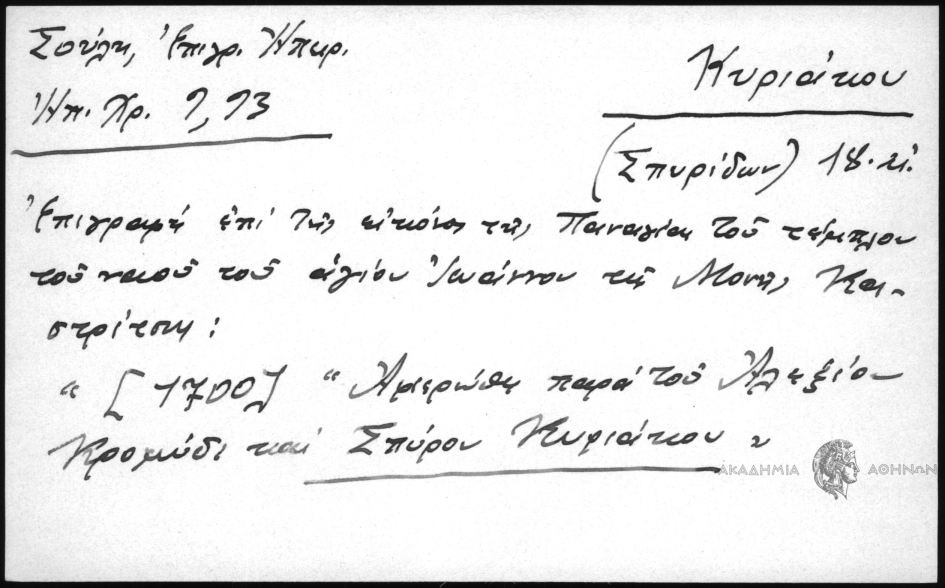 Σούλη, Ἐπιγρ. Ἠπειρ.
Ἠπ. Χρ. 9, 93
Κυριάκου
(Σπυρίδων) 18. αἰ.
Ἐπιγραφή ἐπί τῆς εἰκόνος τῆς Παναγίας τοῦ τέμπλου
τοῦ ναοῦ τοῦ ἁγίου Ἰωάννου τῆς Μονῆς Κα-
στρίτσης:
“ [1700] “ Ἀφιερώθη παρά τοῦ Ἀλεξίου
Κρομμύδι καί Σπύρου Κυριάκου „
ΑΚΑΔΗΜΙΑ ΑΘΗΝΩΝ